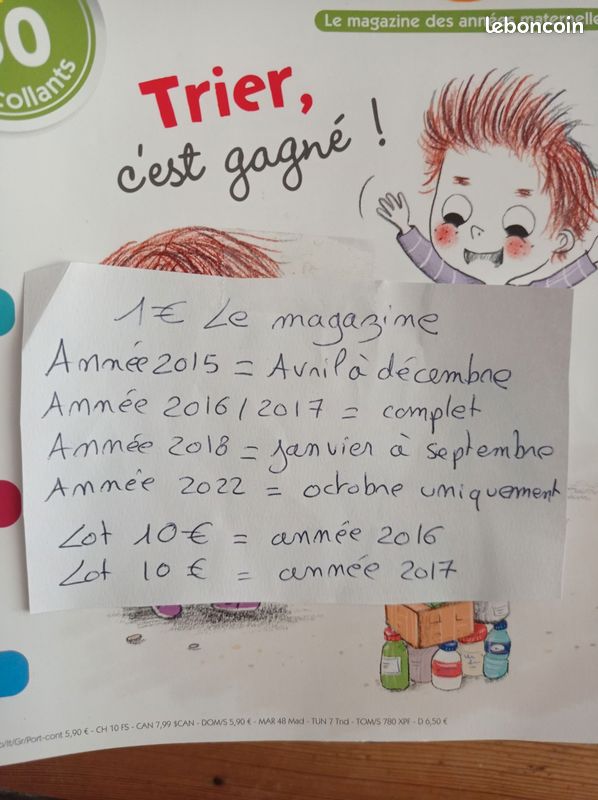 leboncoin
Le magazine des années maternelle
collants
Trier,
c'est gagné !
1€ Le magazine
Année 2015 = Avril à décembre
Année 2016/2017 = complet
Année 2018 = janvier à septembre
Année 2022 = octobre uniquement
Lot 10€ = année 2016
Lot 10€ = année 2017
/It/Gr/Port-cont 5,90 € - CH 10 FS - CAN 7,99 $CAN - DOM/S 5,90 € - MAR 48 Mad - TUN 7 Tnd - TOM/S 780 XPF - D 6,50 €